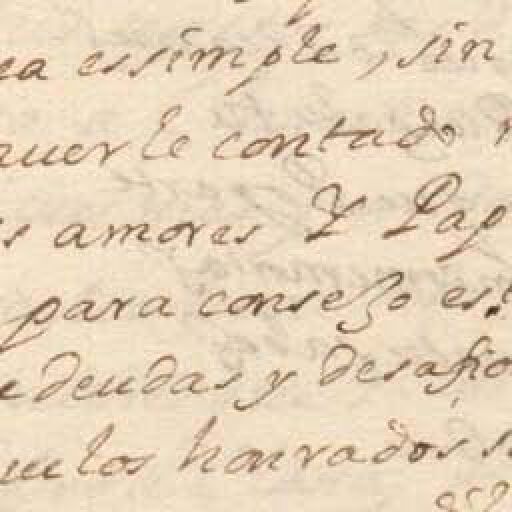 ea es simple, sin
auerle contado
s amores Y Pap
para consejo es
e deudas y desafio
que los honrados s